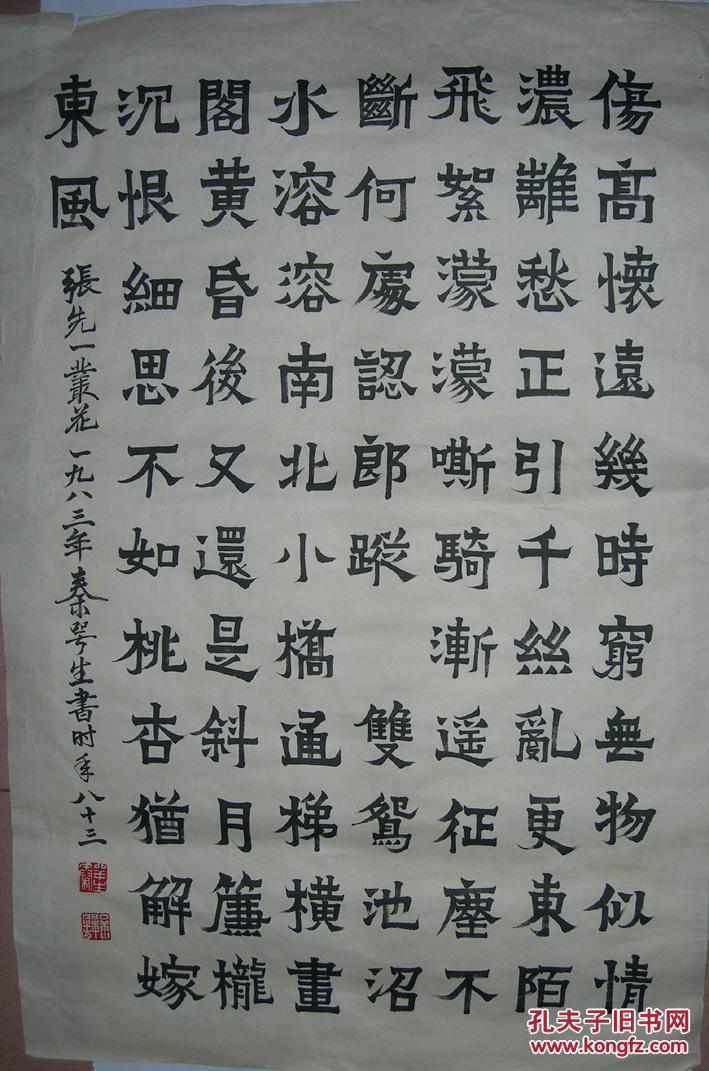 傷高懷遠幾時窮無物似情
濃離愁正引千絲亂更東陌
飛絮濛濛嘶騎漸遥征塵不
斷何處認郎蹤 雙鴛池沼
水溶溶南北小橋通梯横畫
閣黄昏後又還是斜月簾櫳
沉恨細思不如桃杏猶解嫁
東風
張先一叢花一九八三年秦咢生書时年八十三
孔夫子旧书网
www.kongfz.com